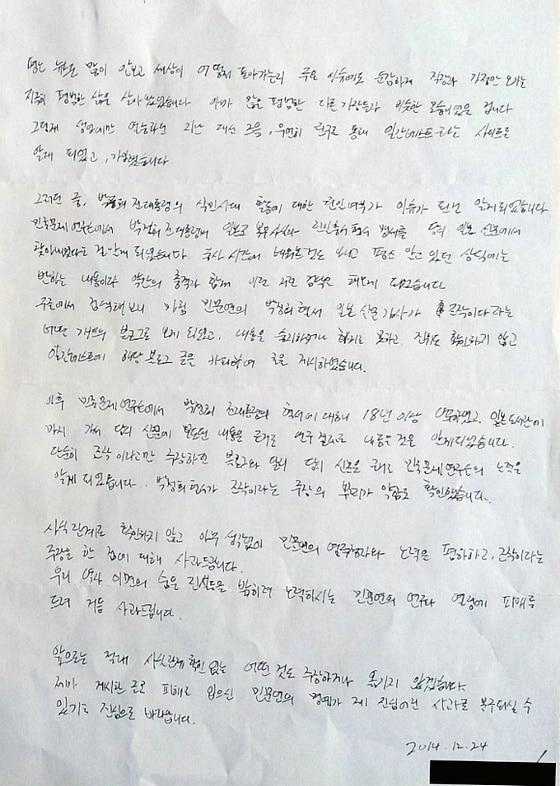 평소 뉴스도 많이 안보고 세상이 어떻게 돌아가는지 주요 이슈에도 둔감하게 직장과 가정만 오가는
지극히 평범한 삶을 살아 왔었습니다. 아마 많은 평범한 다른 가장들과 비슷한 모습이었을 겁니다
그렇게 생활하던 지난 대선 즈음, 우연히 친구를 통해 일간베스트라는 사이트를
알게 되었고, 가입했습니다
그러던 중, 박정희 전대통령의 식민시대 활동에 대한 친일여부가 이슈가 된걸 알게되었습니다
민족문제연구소에서 박정희 전대통령이 일본로 혈서 당시 일본 신문에서
찾아내었다는 걸 알게 되었습니다. 국사 시간에 배워본 것도 아니고 평소 알고 있던 상식에는
반하는 내용이라 약간의 충격과 함께 이런 저런 검색을 해보게 되었습니다
구글에서 검색해 보니 가령 민문연의 박정희 혈서 일본 신문 기사가 조작이다 라는
어떤 개인의 블로그를 보게 되었고, 내용을 숙지하거나 하지도 못하고 진위도 확인하지 않고
일간베스트에 해당 블로그 글을 카피하여 글을 게시하였습니다.
이후 민족문제연구소에서 박정희 전대통령의 혈서에 대해서 18년 이상 연구하였고, 일본 도서관에
까지 가서 당시 신문에 보도된 내용을 근거로 연구 결과로 내놓은 것을 알게되었습니다.
단순히 조작이라고만 주장하던 블로그와 달리 당시 신문을 근거로 민족문제연구소의 노력을
알게 되었습니다. 박정희 혈서가 조작이라는 주장의 뿌리가 약함도 확인했습니다.
사실 관계를 확인하지 않고 아무 생각없이 민문연의 연구결과와 노력을 폄하하고, 조작이라는
주장을 한 점에 대해 사과드립니다.
우리 역사 이면의 숨은 진실들을 밝히려 노력하시는 민문연의 연구와 열정에 피해를
드려 거듭 사과드립니다.
앞으로는 절대 사실관계 확인 없는 어떤 것도 주장하거나 옮기지 않겠습니다.
저의 게시판 글로 피해를 입으신 민문연의 명예가 제 진심어린 사과로 복구되실 수
있기를 진심으로 바랍니다.
2014.12.24